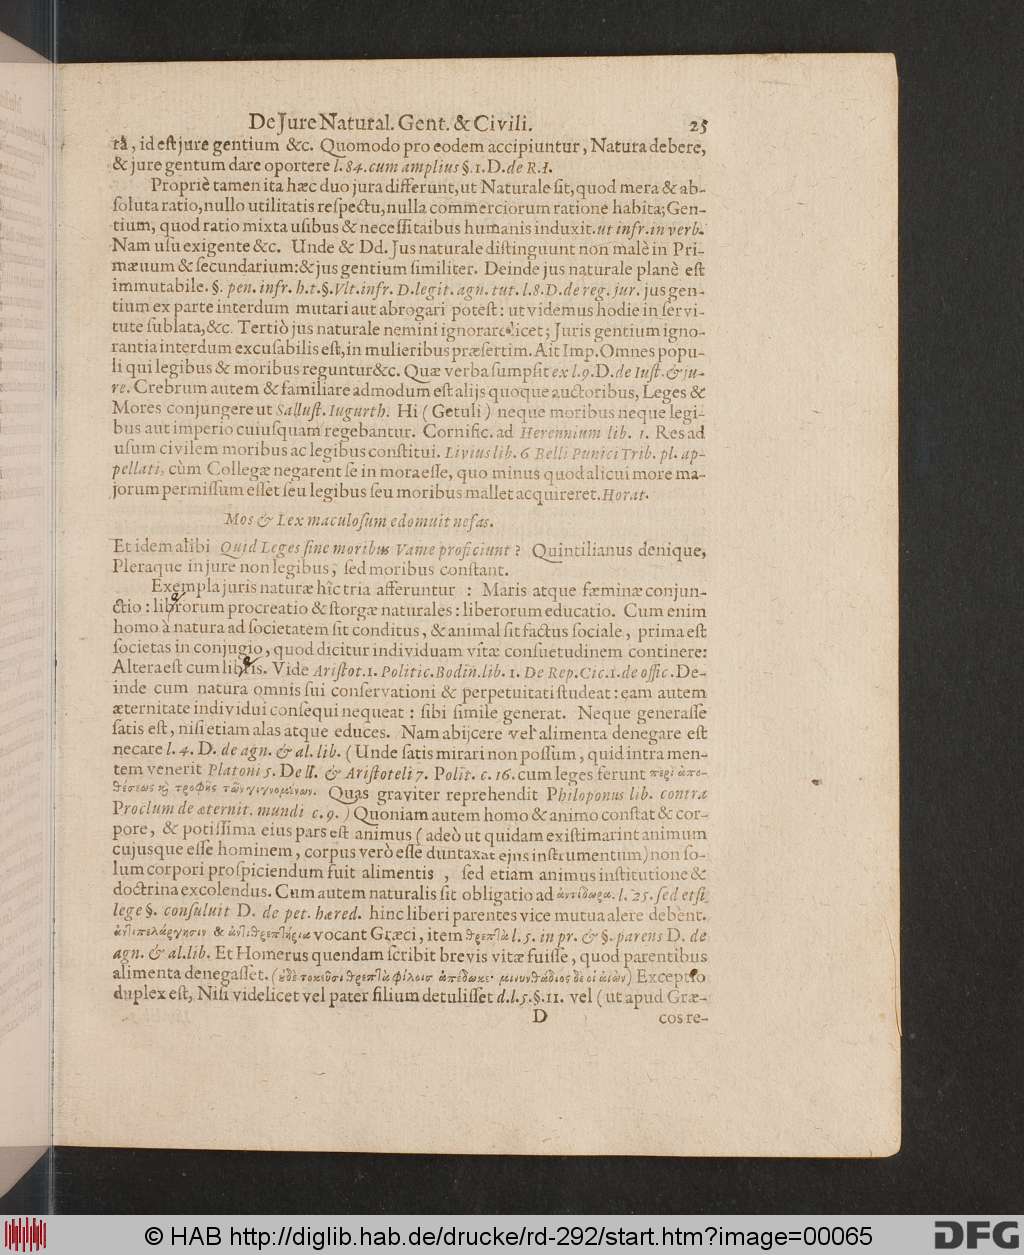 De Jure Natural. Gent. & Civili. 25
râ, id est jure gentium &c. Quomodo pro eodem accipiuntur, Natura debere,
& jure gentum dare oportere l. 84. cum amplius §. 1. D. de R. I.
Propriè tamen ita hæc duo jura differunt, ut Naturale sit, quod mera & ab-
soluta ratio, nullo utilitatis respectu, nulla commerciorum ratione habita; Gen-
tium, quod ratio mixta usibus & necessitaibus humanis induxit. ut infr. in verb.
Nam usu exigente &c. Unde & Dd. Jus naturale distinguunt non malè in Pri-
mævum & secundarium: & jus gentium similiter. Deinde jus naturale planè est
immutabile. §. pen. infr. h.t. §. Vlt. infr. D. legit. agn. tut. l. 8. D. de reg. jur. jus gen-
tium ex parte interdum mutari aut abrogari potest: ut videmus hodie in servi-
tute sublata, &c. Tertiò jus naturale nemini ignorare licet; Juris gentium igno-
rantia interdum excusabilis est, in mulieribus præsertim. Ait Imp. Omnes popu-
li qui legibus & moribus reguntur &c. Quæ verba sumpsit ex l. 9. D. de Iust. & ju-
re. Crebrum autem & familiare admodum est alijs quoque auctoribus, Leges &
Mores conjungere ut Sallust. Iugurth. Hi (Getuli) neque moribus neque legi-
bus aut imperio cuiusquam regebantur. Cornific. ad Herennium lib. 1. Res ad
usum civilem moribus ac legibus constitui. Livius lib. 6 Belli Punici Trib. pl. ap-
pellati, cùm Collegæ negarent se in mora esse, quo minus quod alicui more ma-
jorum permissum esset seu legibus seu moribus mallet acquireret. Horat.
Mos & Lex maculosum edomuit nefas.
Et idem alibi Quid Leges sine moribus Vanæ proficiunt? Quintilianus denique,
Pleraque in jure non legibus, sed moribus constant.
Exempla juris naturæ hîc tria afferuntur : Maris atque fæminæ conjun-
ctio : librorum procreatio & storgæ naturales : liberorum educatio. Cum enim
homo à natura ad societatem sit conditus, & animal sit factus sociale, prima est
societas in conjugio, quod dicitur individuam vitæ consuetudinem continere:
Altera est cum libris. Vide Aristot. 1. Politic. Bodin. lib. 1. De Rep. Cic. 1. de offic. De-
inde cum natura omnis sui conservationi & perpetuitati studeat : eam autem
æternitate individui consequi nequeat : sibi simile generat. Neque generasse
satis est, nisi etiam alas atque educes. Nam abijcere vel alimenta denegare est
necare l. 4. D. de agn. & al. lib. (Unde satis mirari non possum, quid intra men-
tem venerit Platoni 5. De ll. & Aristoteli 7. Polit. c. 16. cum leges ferunt περὶ ἀπο-
θέσεως καὶ τροφῆς τῶν γιγνομένων. Quas graviter reprehendit Philoponus lib. contra
Proclum de æternit. mundi c. 9.) Quoniam autem homo & animo constat & cor-
pore, & potissima eius pars est animus (adeò ut quidam existimarint animum
cujusque esse hominem, corpus verò esse duntaxat ejus instrumentum) non so-
lum corpori prospiciendum fuit alimentis, sed etiam animus institutione &
doctrina excolendus. Cum autem naturalis sit obligatio ad ἀντίδωρα. l. 25. sed etsi
lege §. consuluit D. de pet. hæred. hinc liberi parentes vice mutua alere debent.
ἀντιπελάργησιν & ἀντιθρεπτήρια vocant Græci, item θρεπτὰ l. 5. in pr. & §. parens D. de
agn. & al. lib. Et Homerus quendam scribit brevis vitæ fuisse, quod parentibus
alimenta denegasset. (οὐδὲ τοκεῦσι θρεπτὰ φίλοισ ἀπέδωκε· μινυνθάδιος δέ οἱ αἰὼν) Exceptio
duplex est, Nisi videlicet vel pater filium detulisset d. l. 5. §. 11. vel (ut apud Græ-
D cos re-
© HAB http://diglib.hab.de/drucke/rd-292/start.htm?image=00065
DFG